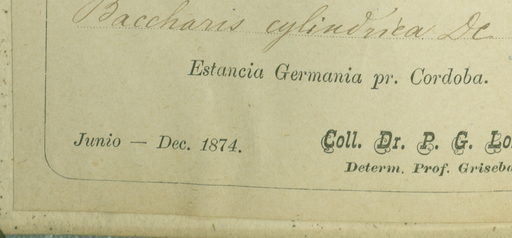 Baccharis cylindrica DC
Estancia Germania pr. Cordoba.
Junio — Dec. 1874.
Coll. Dr. P. G. Lo
Determ. Prof. Griseb